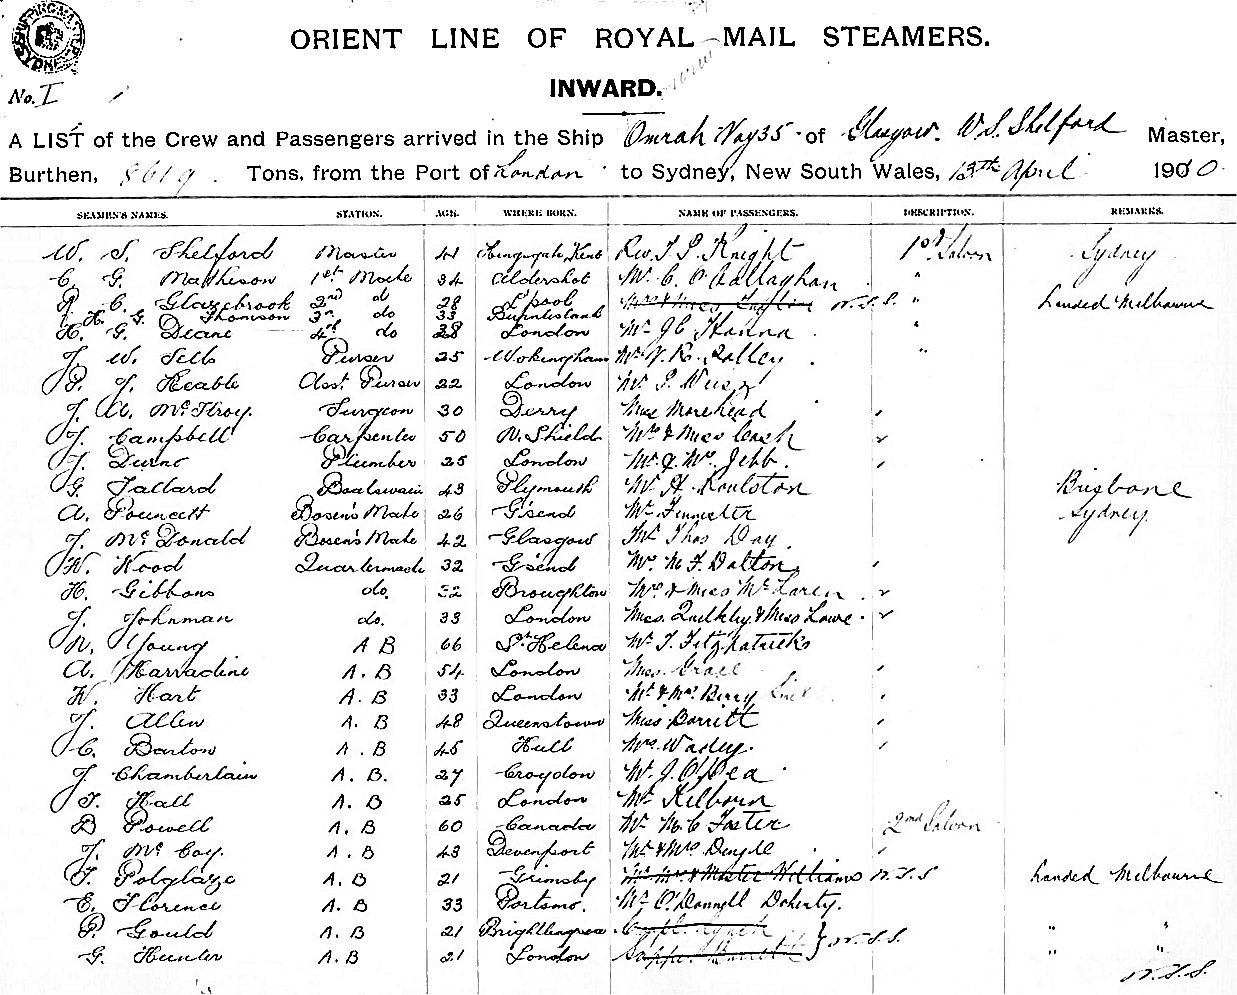 SHIPPING MASTER SYDNEY
ORIENT LINE OF ROYAL MAIL STEAMERS.
INWARD.
No. I
A LIST of the Crew and Passengers arrived in the Ship Omrah of Glasgow. W. S. Shelford Master,
Burthen, 8619. Tons, from the Port of London to Sydney, New South Wales, 13th April 1900.
SEAMEN'S NAMES. STATION. AGE. WHERE BORN. NAME OF PASSENGERS. DESCRIPTION. REMARKS.
W. S. Shelford Master 41 Kent Rev. J. S. Knight 1st Saloon Sydney
C. G. Matheson 1st Mate 34 Aldershot Mr. C. O'Callaghan "
P. C. Glazebrook 2nd do 28 L'pool N.S.S. " Landed Melbourne
H. G. Thomson 3rd do 33 Burntisland
H. G. Deane 4th do 28 London Mr. J C Hanna "
J. W. Sells Purser 25 Wokingham Mr V. R. Salley "
P. J. Heable Asst. Purser 22 London Mr
J. A. McIlroy. Surgeon 30 Derry Miss Morehead
J. Campbell Carpenter 50 N. Shields Mrs & Miss Cash
J. Durno Plumber 25 London Mr & Mrs. Jebb.
G. Tallard Boatswain 43 Plymouth Mr. H. Roulston Brisbane
A. Pouncett Bosen's Mate 26 G'send Mr Sydney.
J. McDonald Bosen's Mate 42 Glasgow Mr Thos Day.
W. Wood Quartermaster 32 G'send Mr. M. F. Dalton
H. Gibbons do. 32 Broughton Mrs & Miss McLaren
J. Johnman do. 33 London Miss & Miss Lowe
W. Young A B 66 St Helena Mr. J. Fitzpatricks
A. Harradine A. B 54 London Miss Grace
W. Hart A. B 33 London Mr & Mrs Berry
J. Allen A. B 48 Queenstown Miss Barritt
C. Barton A. B 45 Hull Mrs. Wadey.
J. Chamberlain A. B. 27 Croydon Mr. J. O'Dea
F. Hall A. B 25 London Mr. Kilborn
B Powell A. B 60 Canada Mr M. C Foster 2nd Saloon
J. McCoy. A. B 43 Devenport Mr & Mrs Dengle
F. Polglaze A. B 21 Grimsby Mr Mrs & Master Williams N.S.S Landed Melbourne
E. Florence A. B 33 Portsmo. Mr O'Donnell Doherty.
P. Gould A. B 21 Brightlingsea Capt. Lynch N.S.S. " "
G. Hunter A. B 21 London Sapper " "
N.S.S.